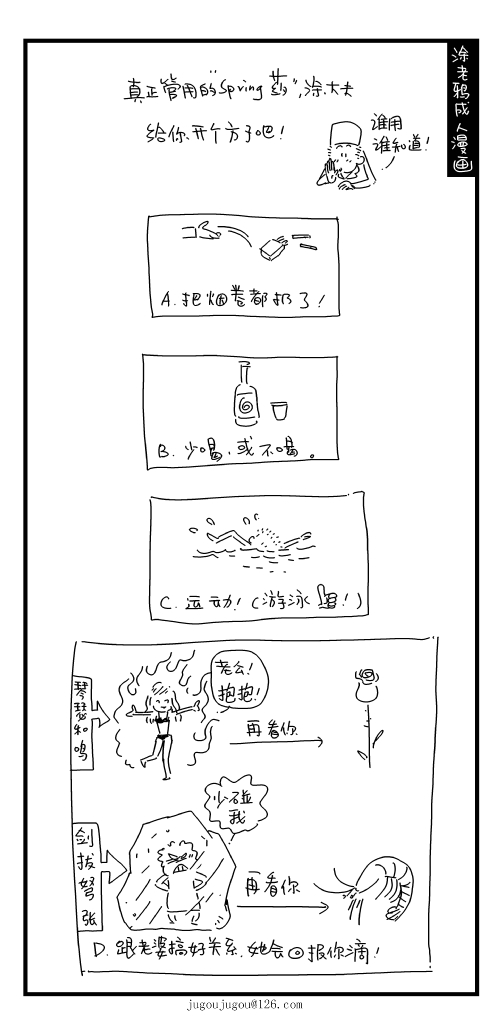 涂老鸦成人漫画
真正管用的"Spring药",涂大夫
给你开个方子吧!
谁用
谁知道!
A.把烟卷都扔了!
B.少喝,或不喝。
C.运动!(游泳!)
琴瑟和鸣
老公!
抱抱!
再看你
剑拔弩张
少碰
我
再看你
D.跟老婆搞好关系,她会回报你滴!
jugoujugou@126.com